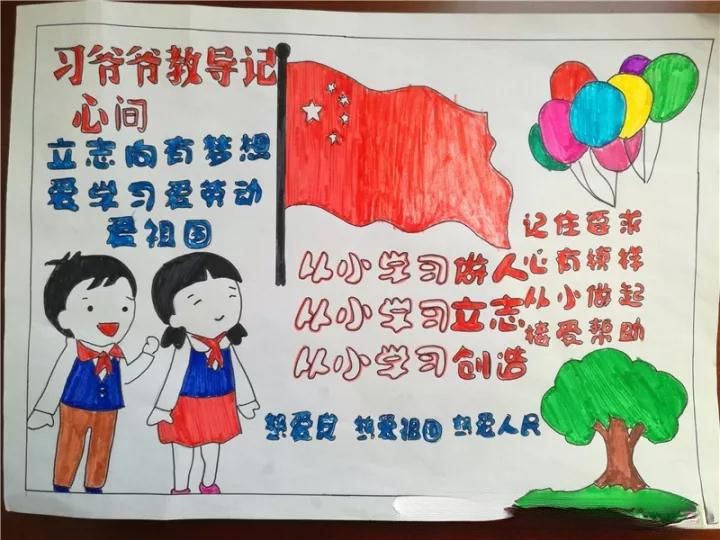 习爷爷教导记
心间
立志向有梦想
爱学习爱劳动
爱祖国
从小学习做人
从小学习立志
从小学习创造
记住要求
心有榜样
从小做起
接受帮助
热爱党 热爱祖国 热爱人民